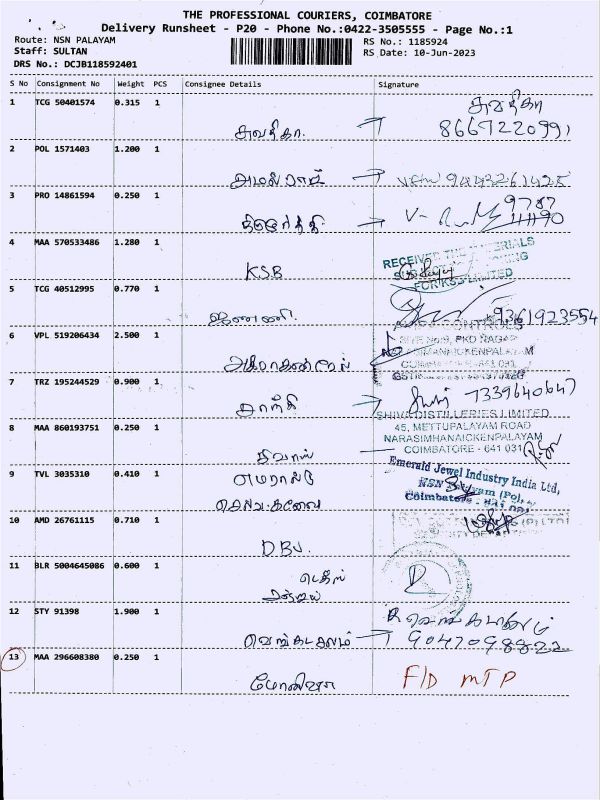 THE PROFESSIONAL COURIERS, COIMBATORE
Delivery Runsheet - P20 - Phone No.:0422-3505555 - Page No.:1
Route: NSN PALAYAM
RS No.: 1185924
Staff: SULTAN
RS Date: 10-Jun-2023
DRS No.: DCJB118592401
S No Consignment No Weight PCS Consignee Details Signature
1 TCG 50401574 0.315 1
சுவதிகா
சுவதிகா. 8667220991
2 POL 1571403 1.200 1
அமல்ராஜ் 9443261425
3 PRO 14861594 0.250 1
9787
4 MAA 570533486 1.280 1
RECEIVED THE MATERIALS
KSB
FOR KSB LIMITED
5 TCG 40512995 0.770 1
ஜனனி. 9361923554
CONTROLS
6 VPL 519206434 2.500 1
SITE No.9, PKD NAGAR
NARASIMANAICKENPALAYAM
COIMBATORE - 641 031
7 TRZ 195244529 0.900 1
சாந்தி 7339640647
SHIVA DISTILLERIES LIMITED
8 MAA 860193751 0.250 1
45, METTUPALAYAM ROAD
NARASIMHANAICKENPALAYAM
COIMBATORE - 641 031
சிவாஸ்
Emerald Jewel Industry India Ltd,
9 TVL 3035310 0.410 1
எமரால்டு
NSN Palayam (Po),
Coimbatore - 641 031
10 AMD 26761115 0.710 1
DBJ.
11 BLR 5004645086 0.600 1
12 STY 91398 1.900 1
R வெங்கடாசலம்
வெங்கடாசலம் 9047098822
13 MAA 296608380 0.250 1
மோனிஷா F/D MTP